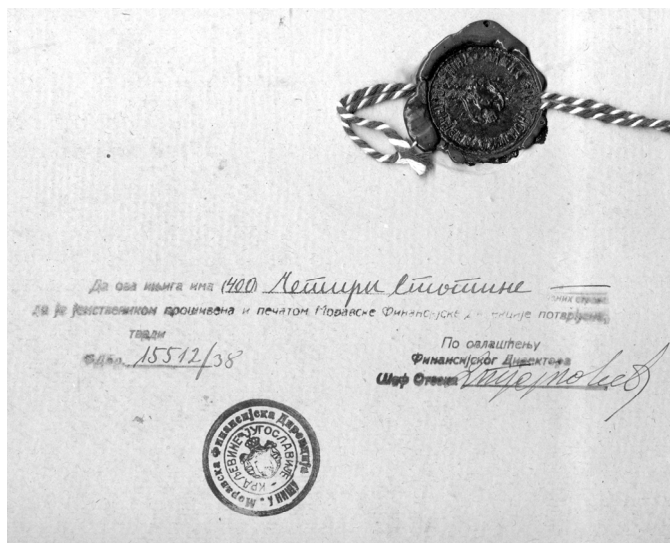 Да ова књига има (400) Четири Стотине
них страна
да је јемствеником прошивена и печатом Моравске Финансијске потврђена,
тврди
ФДБр. 15512/38
По овлашћењу
Финансијског Директора
Шеф Отсека
Моравска Финансијска Дирекција
КРАЉЕВИНЕ ЈУГОСЛАВИЈЕ